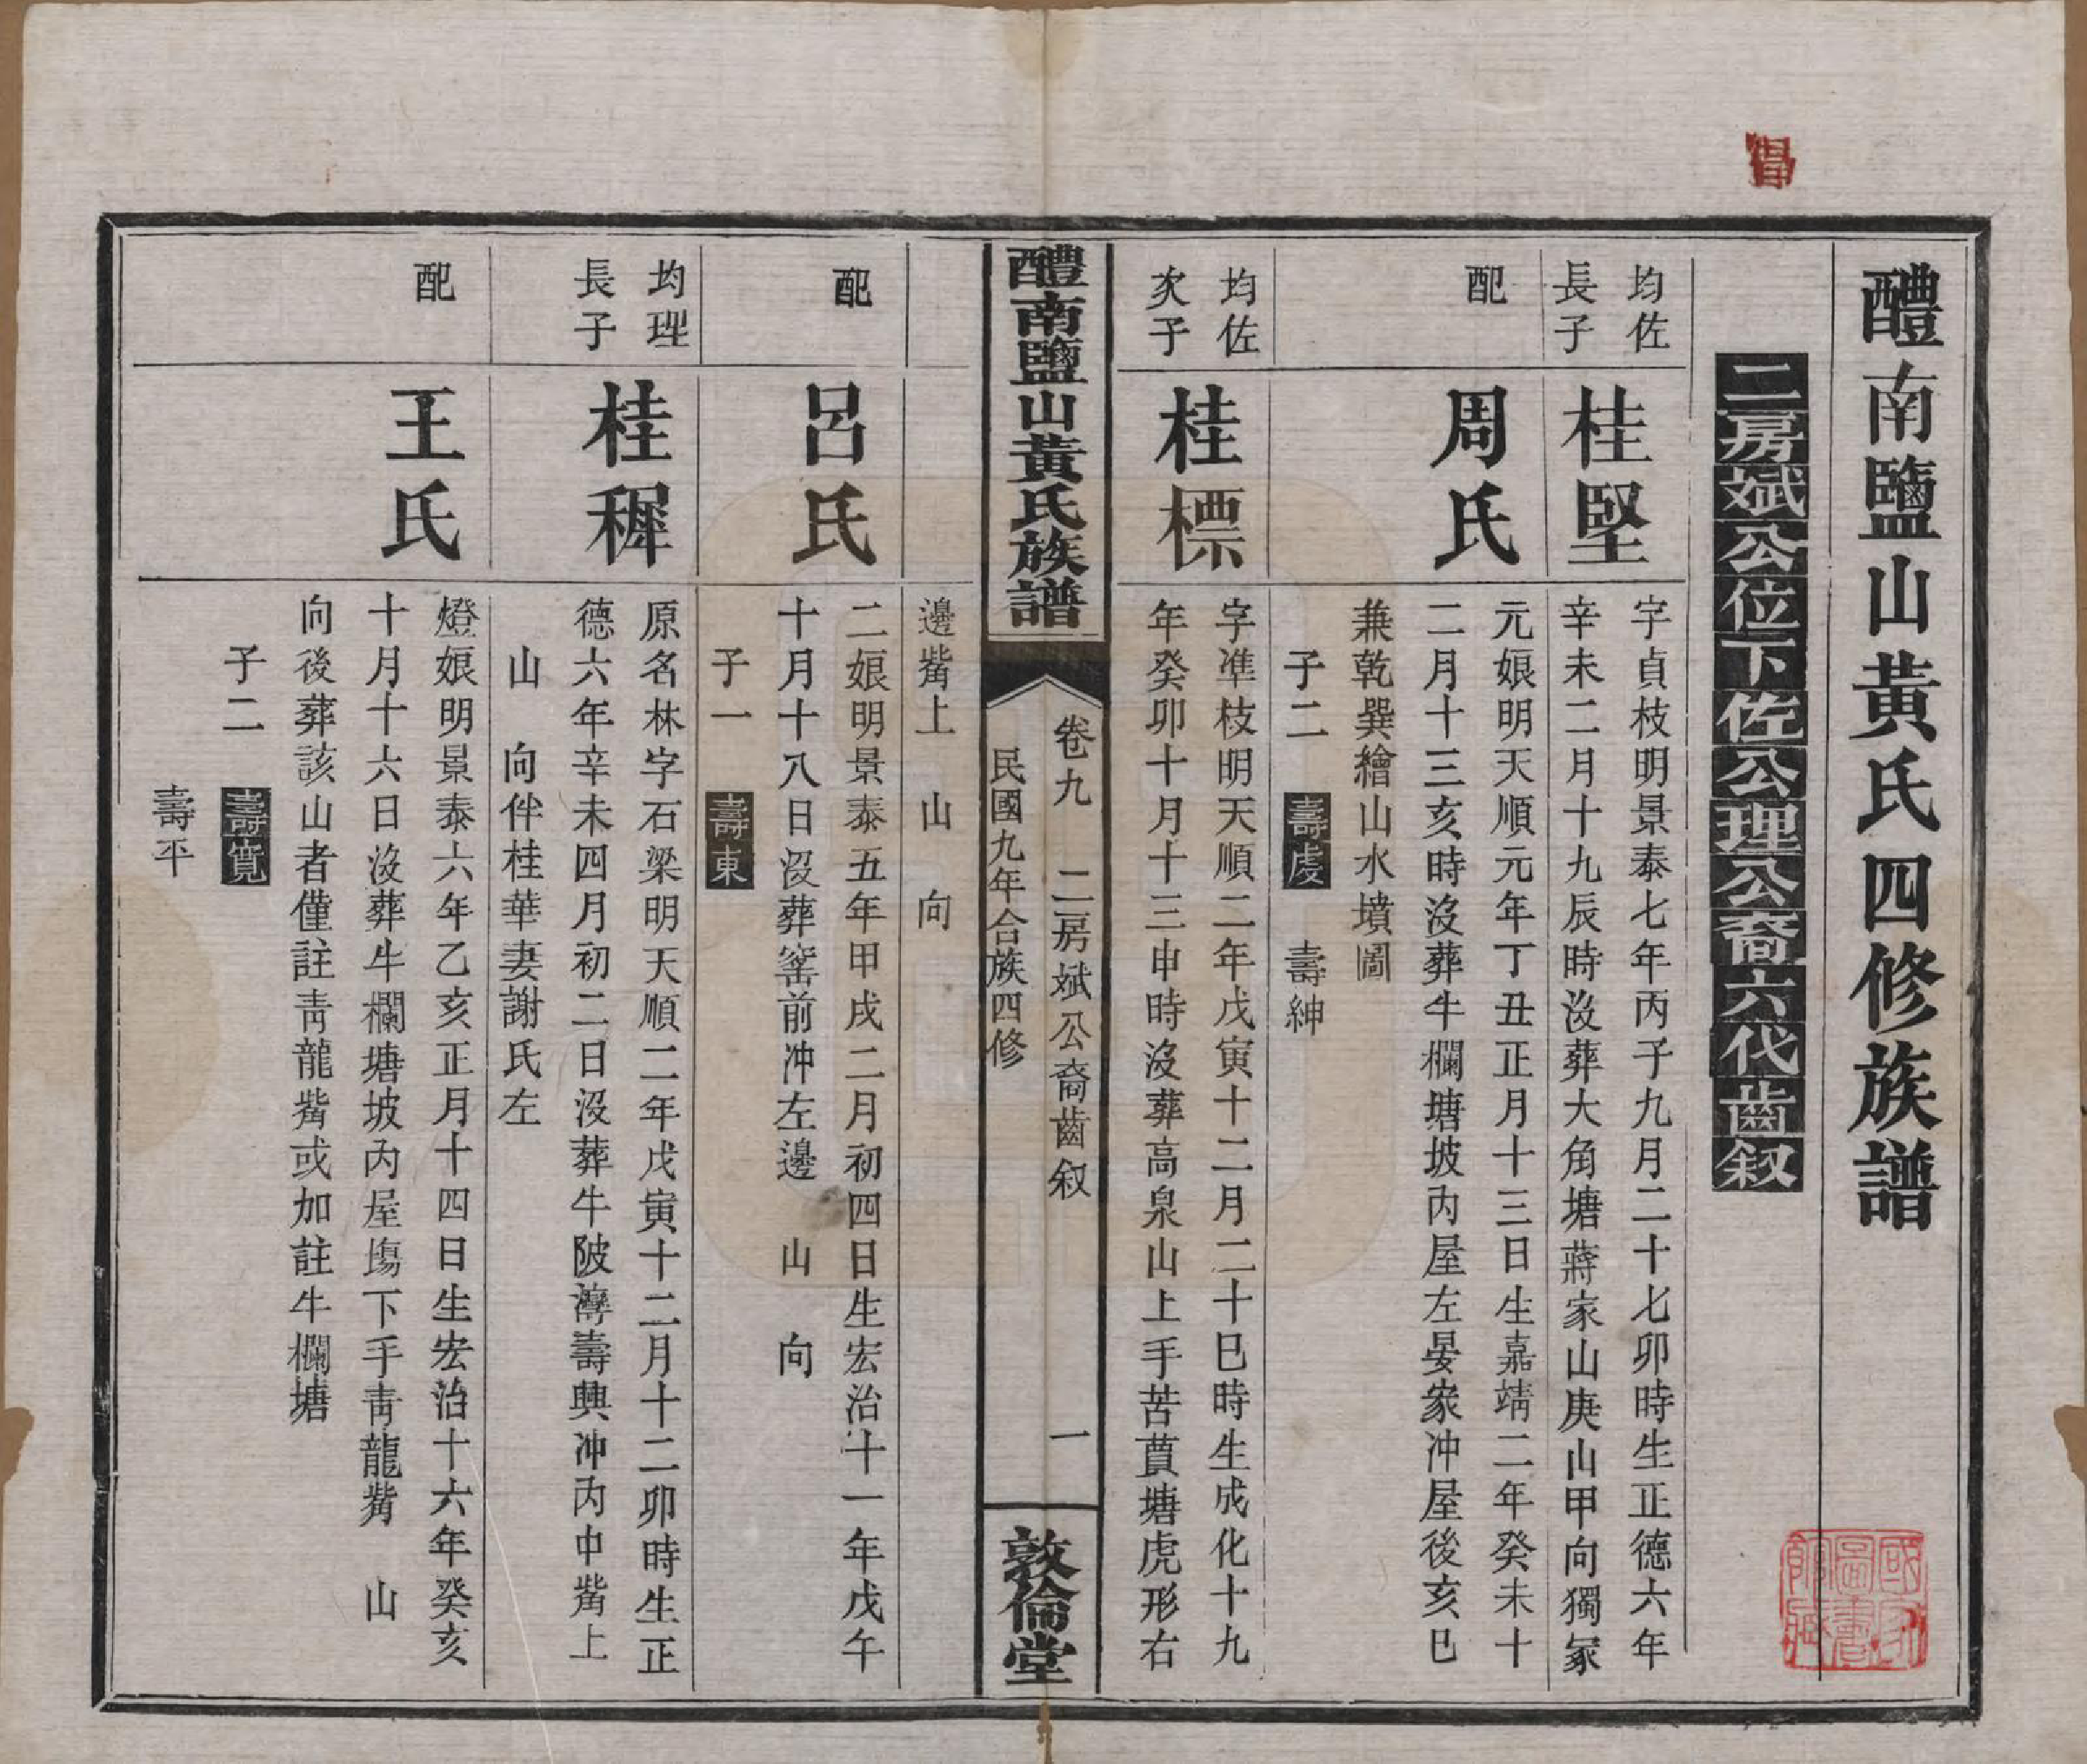 醴南鹽山黃氏四修族譜
二房斌公位下佐公理公裔六代齒叙
均佐
長子
桂堅
字貞枝明景泰七年丙子九月二十七卯時生正德六年
辛未二月十九辰時沒葬大角塘蔣家山庚山甲向獨冢
配
周氏
元娘明天順元年丁丑正月十三日生嘉靖二年癸未十
二月十三亥時沒葬牛欄塘坡內屋左晏家冲屋後亥巳
兼乾巽繪山水墳圖
子二 壽虔 壽紳
均佐
次子
桂標
字準枝明天順二年戊寅十二月二十巳時生成化十九
年癸卯十月十三申時沒葬高泉山上手苦蕒塘虎形右
醴南鹽山黃氏族譜
卷九 二房斌公裔齒叙 一
民國九年合族四修
敦倫堂
邊觜上 山 向
配
呂氏
二娘明景泰五年甲戌二月初四日生宏治十一年戊午
十月十八日沒葬窰前冲左邊 山 向
子一 壽東
均理
長子
桂樨
原名林字石梁明天順二年戊寅十二月十二卯時生正
德六年辛未四月初二日沒葬牛陂灣壽興冲內中觜上
山 向伴桂華妻謝氏左
配
王氏
燈娘明景泰六年乙亥正月十四日生宏治十六年癸亥
十月十六日沒葬牛欄塘坡內屋塲下手靑龍觜 山
向後葬該山者僅註靑龍觜或加註牛欄塘
子二 壽寛
壽平
國家圖書館藏